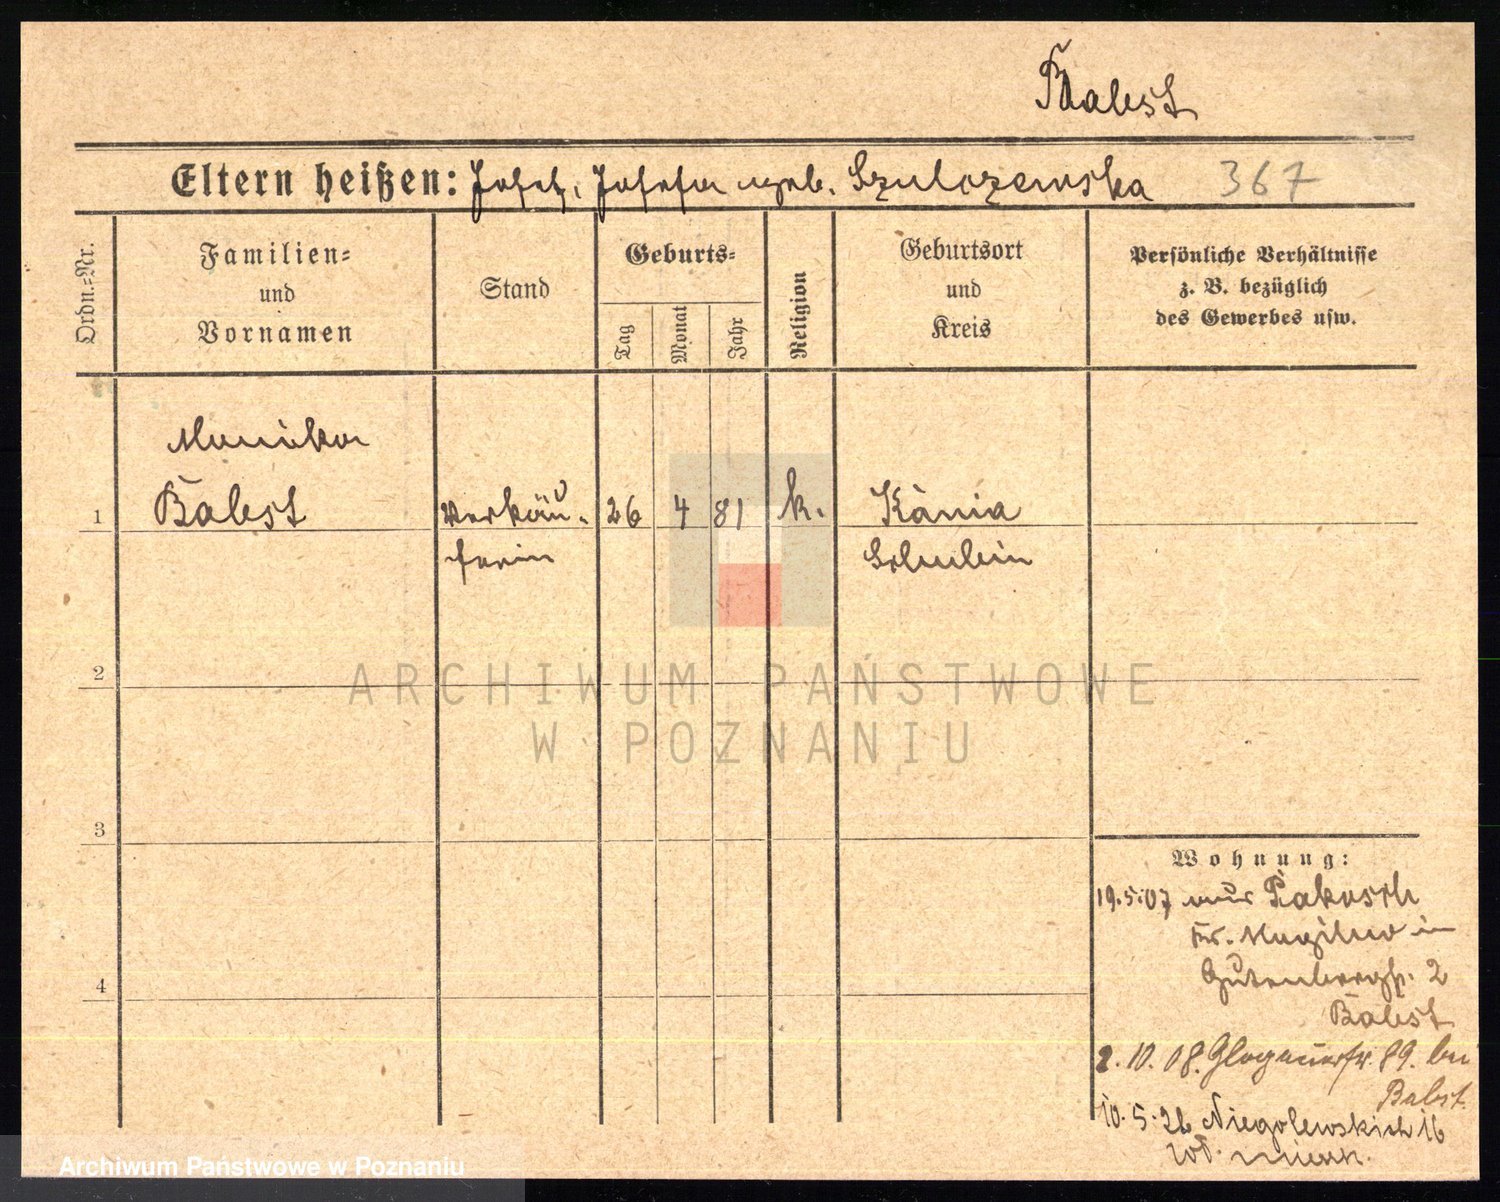 Babst
Eltern heißen: Josef, Josefa geb. Szulczewska 367
Ordn.=Nr.
Familien=
und
Vornamen
Stand
Geburts=
Tag
Monat
Jahr
Religion
Geburtsort
und
Kreis
Persönliche Verhältnisse
z. B. bezüglich
des Gewerbes usw.
Monika
1 Babst Verkäu- 26 4 81 k. Kania
ferin Schubin
2
3
4
ARCHIWUM PAŃSTWOWE
W POZNANIU
Wohnung:
19.5.07 aus Pakosch
Kr. Mogilno in
Gutenbergstr. 2
Babst
2.10.08. Glogauerstr. 89. bei
Babst.
10.5.26 Niegolewskich 16
Archiwum Państwowe w Poznaniu